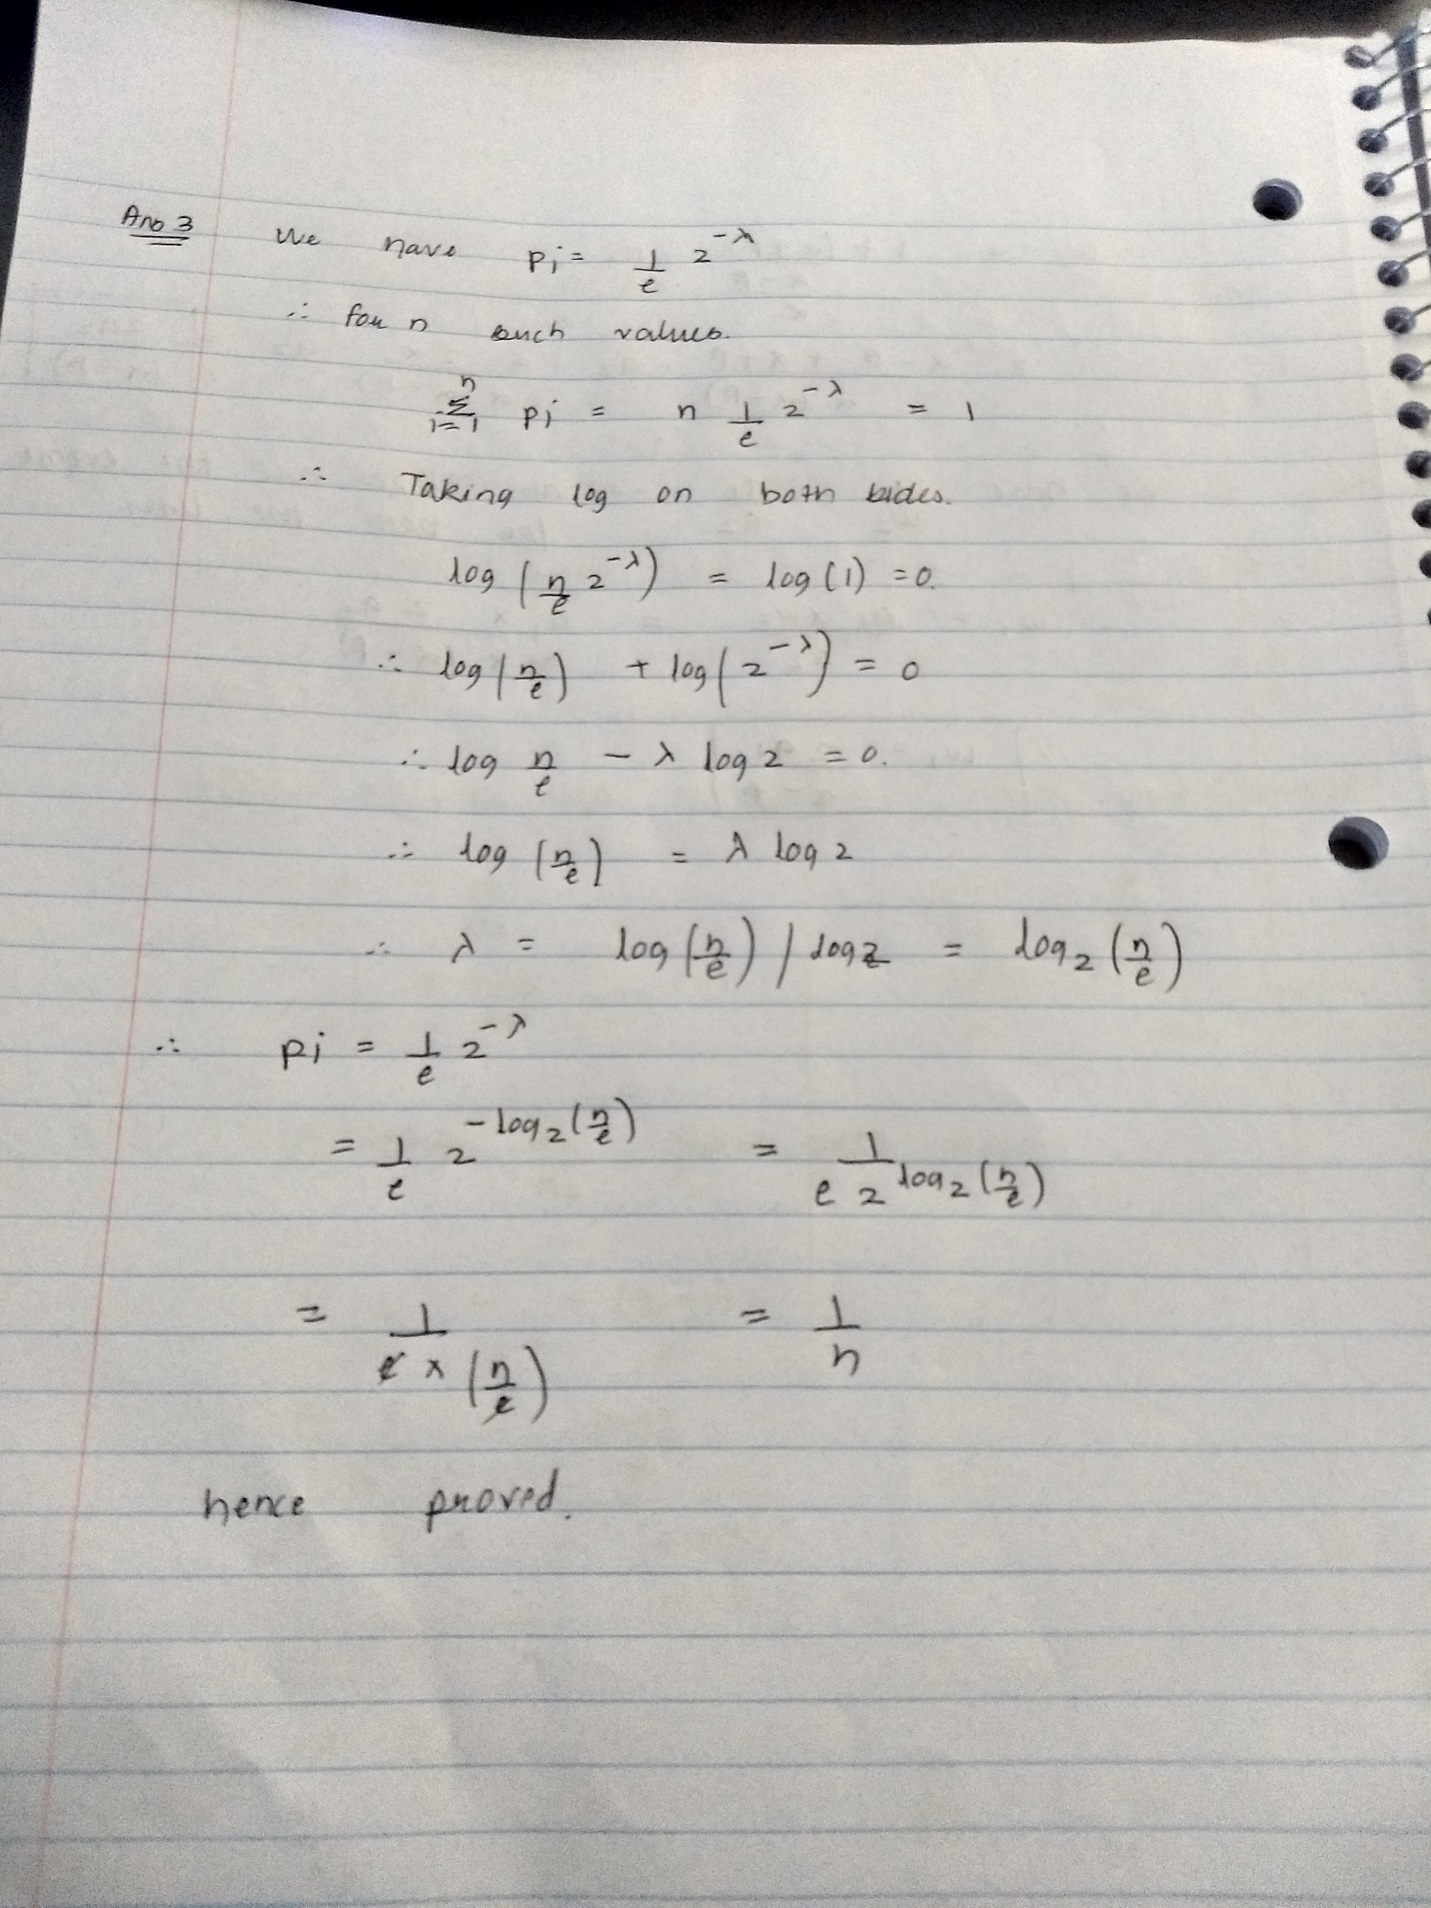 Ans 3 We have pi = 1/e 2^-λ
∴ for n such values.
n Σ i=1 pi = n 1/e 2^-λ = 1
∴ Taking log on both sides.
log (n/e 2^-λ) = log(1) = 0.
∴ log (n/e) + log (2^-λ) = 0
∴ log n/e - λ log 2 = 0.
∴ log (n/e) = λ log 2
∴ λ = log (n/e) / log 2 = log₂ (n/e)
∴ pi = 1/e 2^-λ
= 1/e 2^-log₂(n/e) = 1/(e 2^log₂(n/e))
= 1/(e × (n/e)) = 1/n
hence proved.